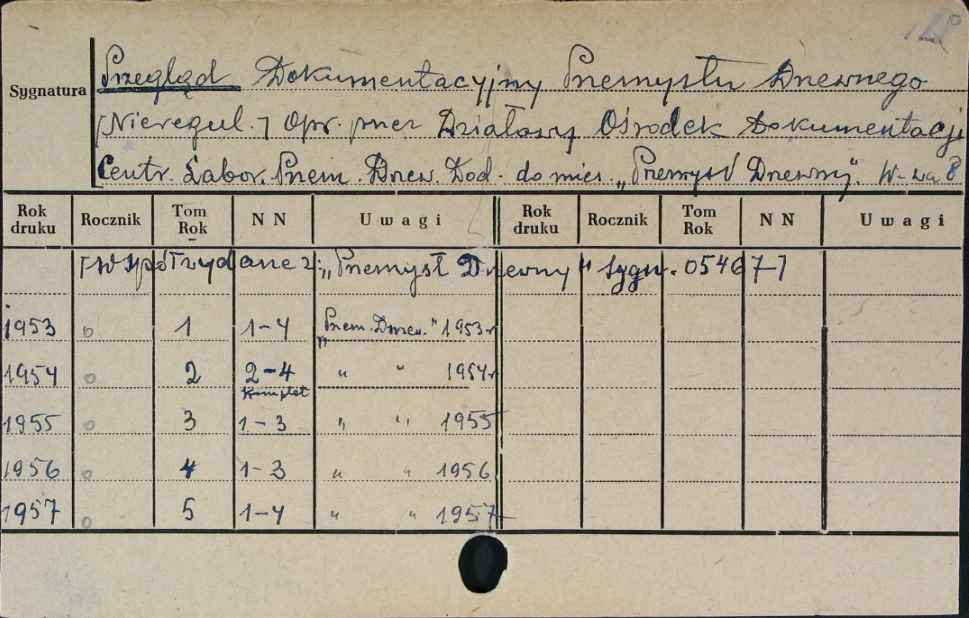 Sygnatura
Przegląd Dokumentacyjny Przemysłu Drzewnego
[Nieregul.] Opr. przez Działowy Ośrodek Dokumentacji
Centr. Labor. Przem. Drzew. Dod. do mies. „Przemysł Drzewny". W-wa 8°
Rok druku Rocznik Tom Rok NN Uwagi Rok druku Rocznik Tom Rok NN Uwagi
[Współwydane z: „Przemysł Drzewny" sygn. 05467]
1953 o 1 1-4 „Przem. Drzew." 1953 r
1954 o 2 2-4 komplet " " 1954 r
1955 o 3 1-3 " " 1955
1956 o 4 1-3 " " 1956
1957 o 5 1-4 " " 1957